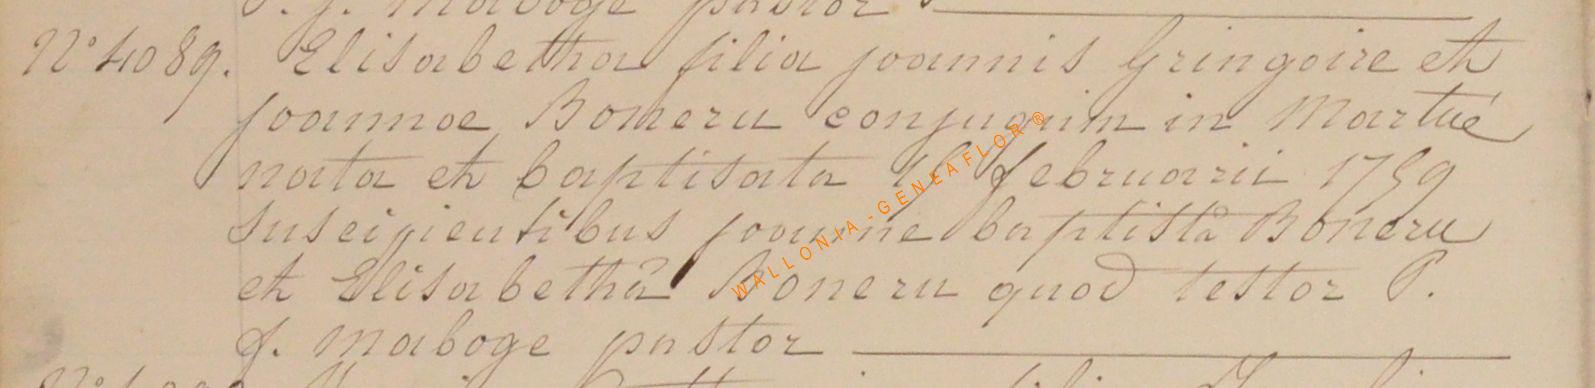 P. J. Maboge pastor
N° 4089. Elisabetha filia joannis Gringoire et
joannae Boneru conjugum in Martué
nata et baptisata februarii 1759
suscipientibus joanne baptistâ Boneru
et Elisabethâ Boneru quod testor P.
J. Maboge pastor
WALLONIA-GENEAFLOR®